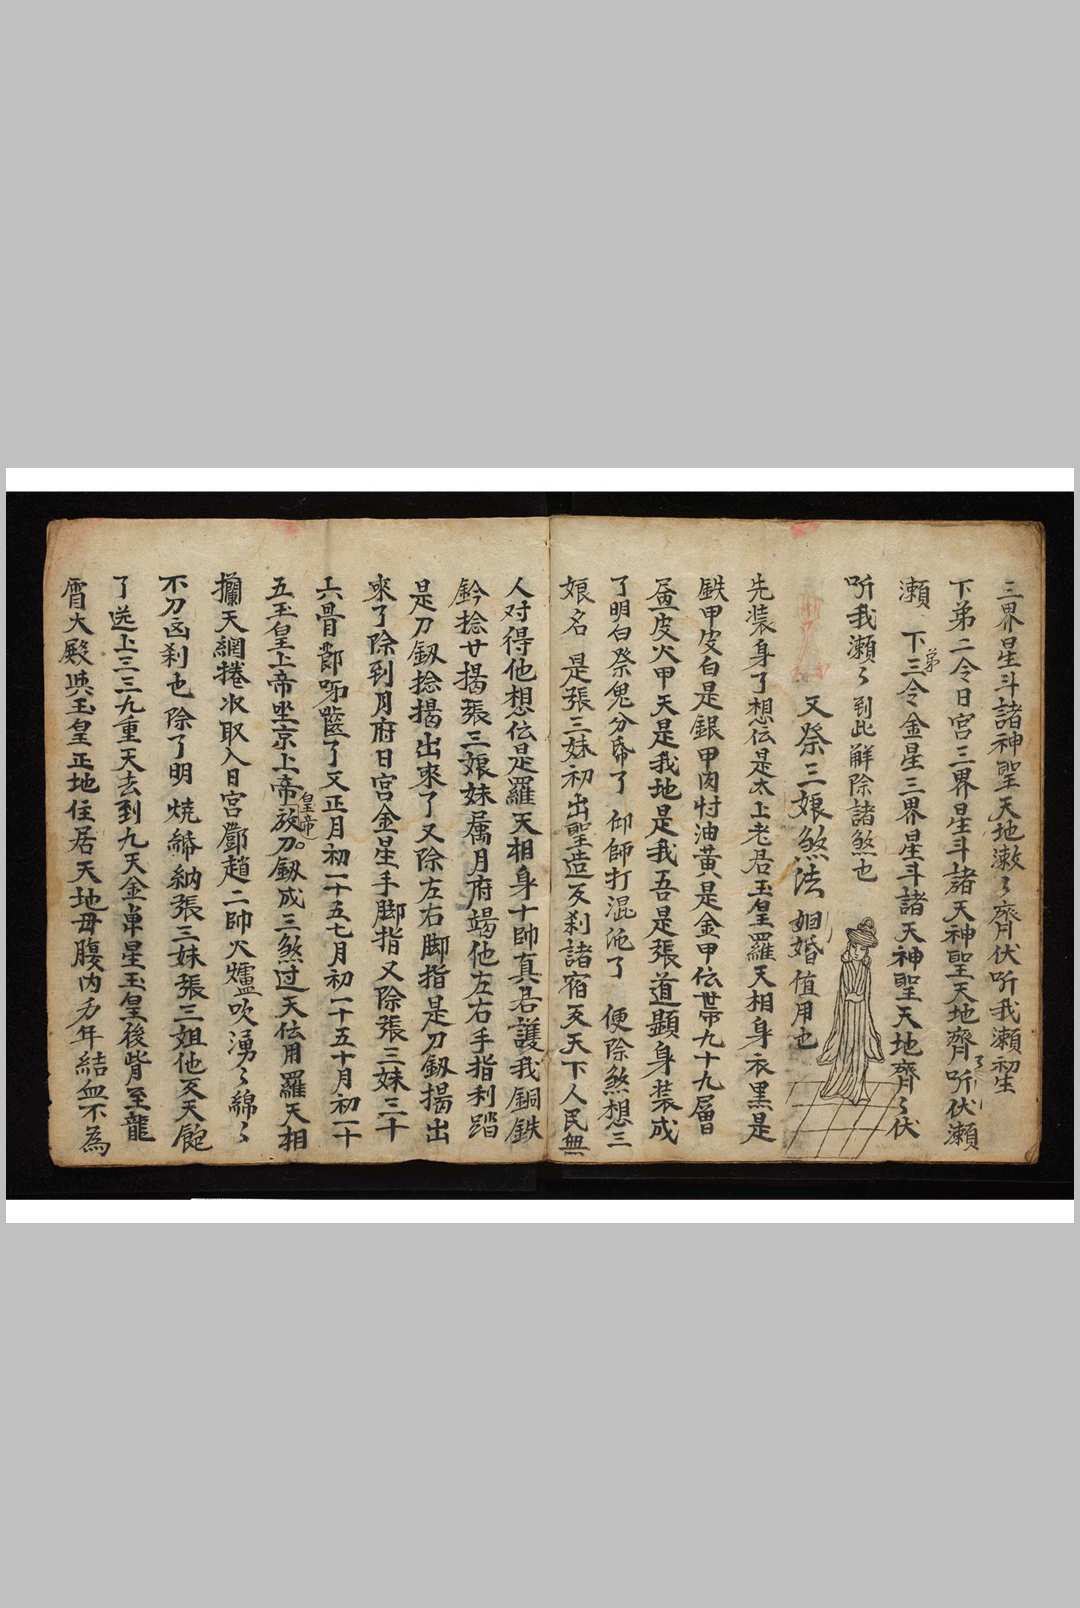 三界星斗諸神聖天地潄〻齊伏听我瀬初生
下弟二令日宮三界星斗諸天神聖天地齊听伏瀬
瀬 下三弟令金星三界星斗諸天神聖天地齊〻伏
听我瀬〻到此解除諸煞也
又祭三娘煞法 姻婚值用也
先装身了想伝是太上老君玉皇羅天相身衣黒是
鉄甲皮白是銀甲肉忖油黄是金甲伝世帝九十九層曰
皮火甲天是我地是我吾是張道顯身装成
了明白祭鬼分了 仰師打混沌了 便除煞想三
娘名 是張三妹初出聖造刹諸宿天下人民無
人对得他想伝是羅天相身十帥真君護我銅鉄
鈴捻廿揭張三娘妹属月府竭他左右手指利踏
是刀釼捻揭出來了又除左右脚指是刀釼揭出
來了除到月府日宮金星手脚指又除張三妹三十
六骨了又正月初一十五七月初一十五十月初一十
五玉皇上帝坐京上帝皇帝放刀釼成三煞过天伝用羅天相
攔天網捲水取入日宮鄧趙二帥火爐吹湧〻綿〻
不刀凶刹也除了明 焼納張三妹張三姐他天
了送上三三九重天去到九天金星玉皇後背至龍
霄大殿與玉皇正地住居天地母腹内年結血不為